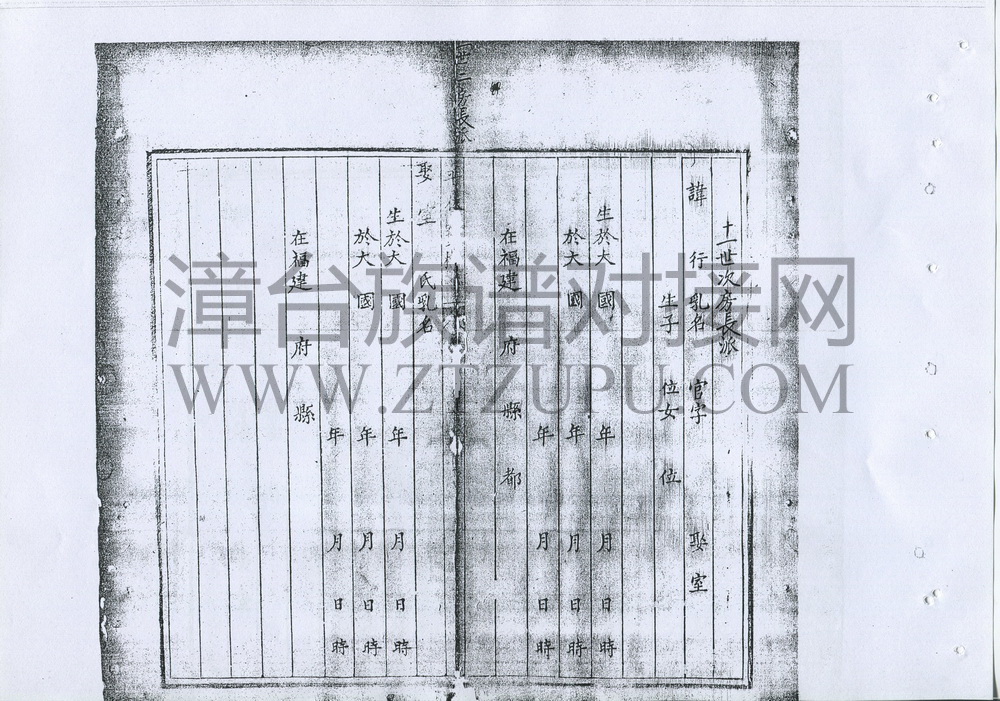 十一世次房長派
諱 行乳名 官字 娶室
生子 位女 位
生於大 國 年 月 日 時
於大 國 年 月 日 時
年 月 日 時
在福建 府 縣 都
娶室 氏乳名
生於大 國 年 月 日 時
於大 國 年 月 日 時
年 月 日 時
在福建 府 縣
漳台族谱对接网
WWW.ZTZUPU.COM